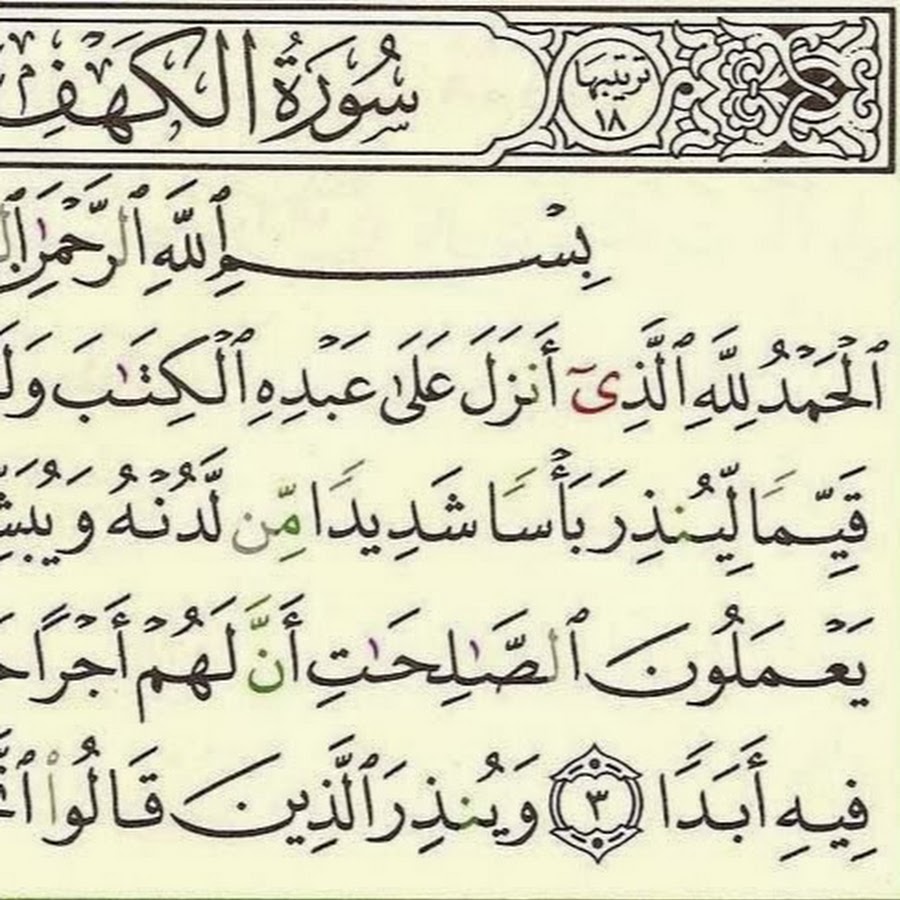 سُورَةُ الكَهْفِ
ترتيبها
١٨
بِسْمِ ٱللَّهِ ٱلرَّحْمَٰنِ
ٱلْحَمْدُ لِلَّهِ ٱلَّذِىٓ أَنزَلَ عَلَىٰ عَبْدِهِ ٱلْكِتَٰبَ
قَيِّمًا لِّيُنذِرَ بَأْسًا شَدِيدًا مِّن لَّدُنْهُ
يَعْمَلُونَ ٱلصَّٰلِحَٰتِ أَنَّ لَهُمْ أَجْرًا
فِيهِ أَبَدًا ٣ وَيُنذِرَ ٱلَّذِينَ قَالُوا۟